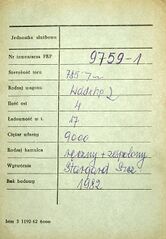 Jednostka służbowa
Nr inwentarza PKP 9759-1
Szerokość toru 785
Rodzaj wagonu
Ilość osi 4
Ładowność w t. 17
Ciężar własny 9000
Rodzaj hamulca ręczny + zespolony
Wytwórnia Stargard
Rok budowy 1982